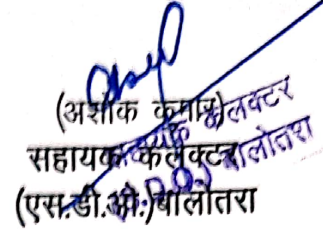 (अशोक कुमार)
सहायक कलक्टर
(एस.डी.ओ.)बालोतरा
सहायक कलक्टर
(S.D.O.) बालोतरा